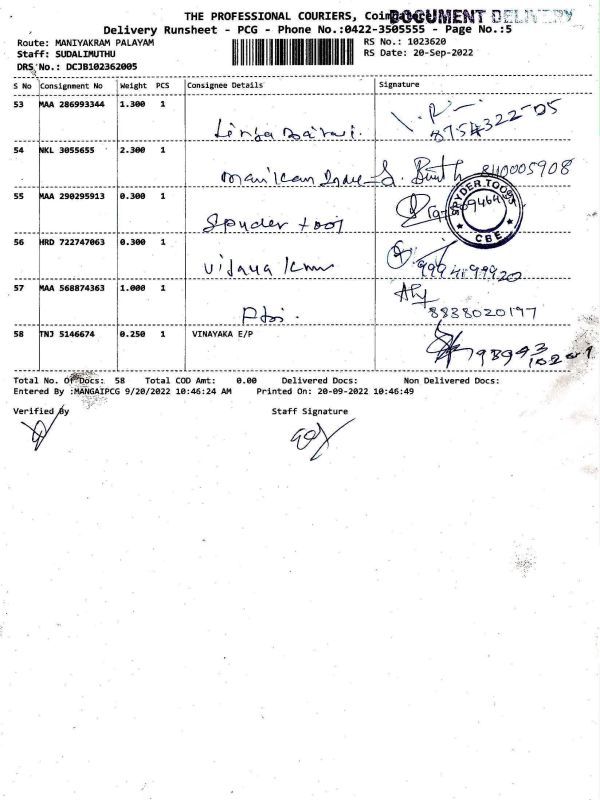 THE PROFESSIONAL COURIERS, Coimbatore
DOCUMENT DELIVERY
Delivery Runsheet - PCG - Phone No.:0422-3505555 - Page No.:5
Route: MANIYAKRAM PALAYAM
RS No.: 1023620
Staff: SUDALIMUTHU
RS Date: 20-Sep-2022
DRS No.: DCJB102362005
S No Consignment No Weight PCS Consignee Details Signature
53 MAA 286993344 1.300 1
8754322705
54 NKL 3055655 2.300 1
8110005908
55 MAA 290295913 0.300 1
Spyder tool
SPYDER TOOLS
CBE
56 HRD 722747063 0.300 1
Vijaya Kmr
9994199920
57 MAA 568874363 1.000 1
8838020197
58 TNJ 5146674 0.250 1 VINAYAKA E/P
Total No. Of Docs: 58 Total COD Amt: 0.00 Delivered Docs: Non Delivered Docs:
Entered By :MANGAIPCG 9/20/2022 10:46:24 AM Printed On: 20-09-2022 10:46:49
Verified By Staff Signature